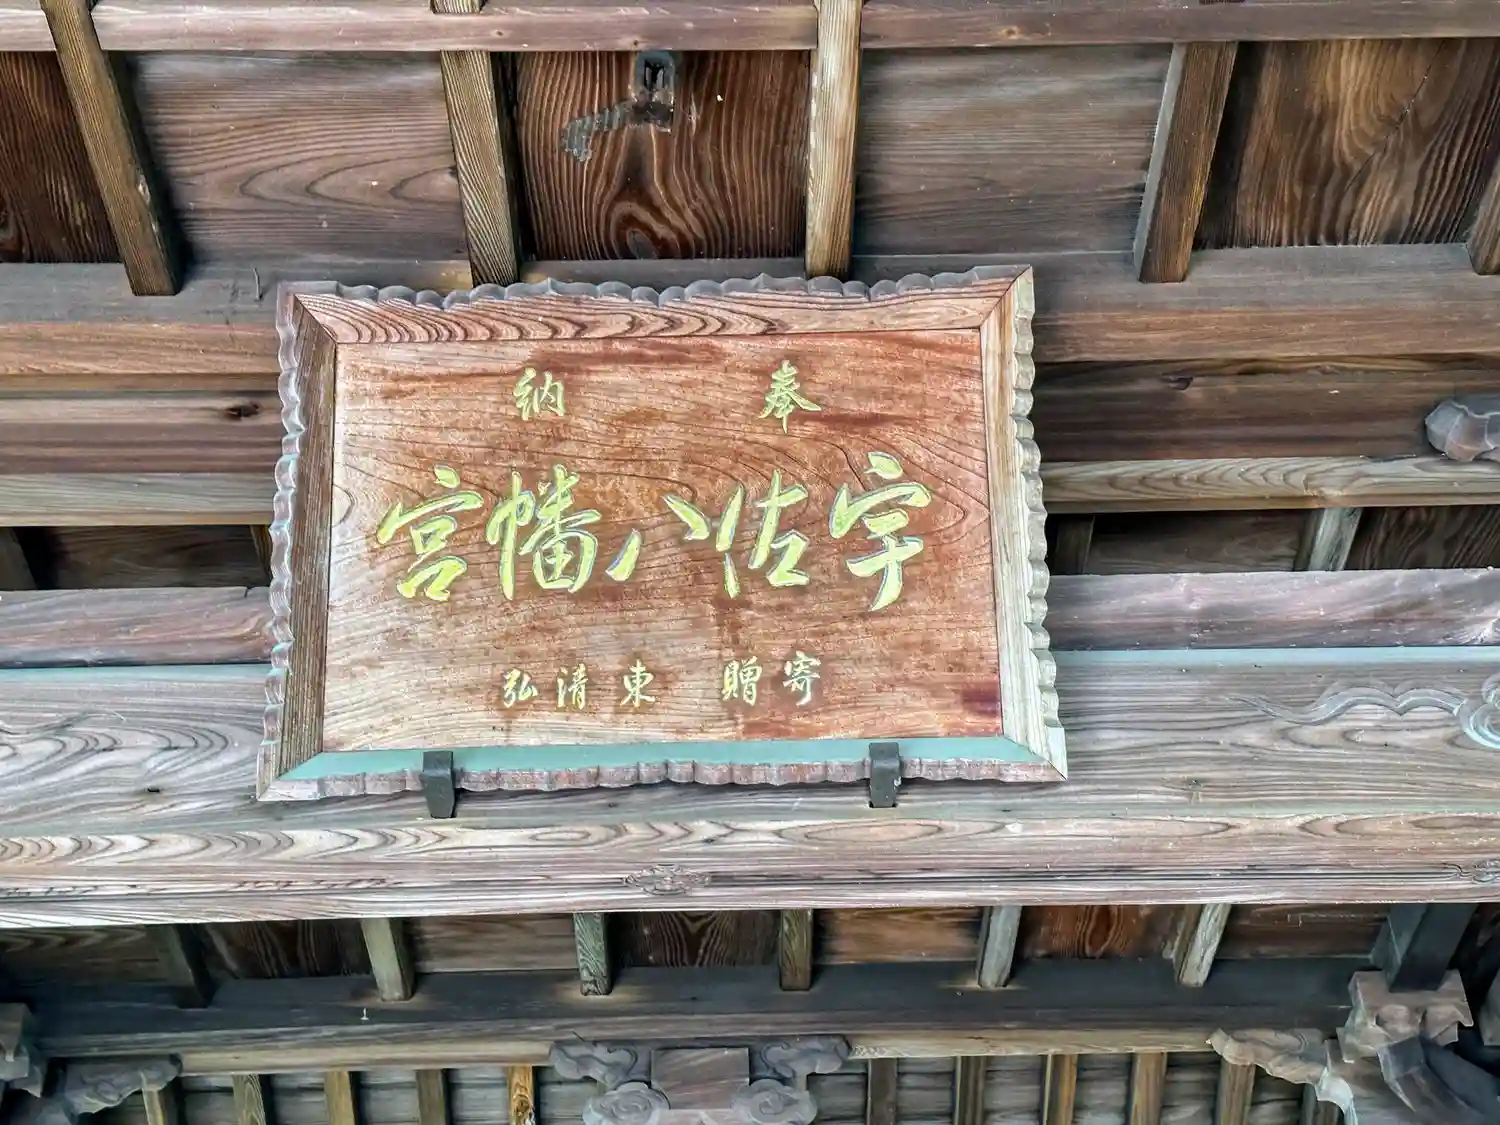 奉納
宇佐八幡宮
寄贈 東清弘